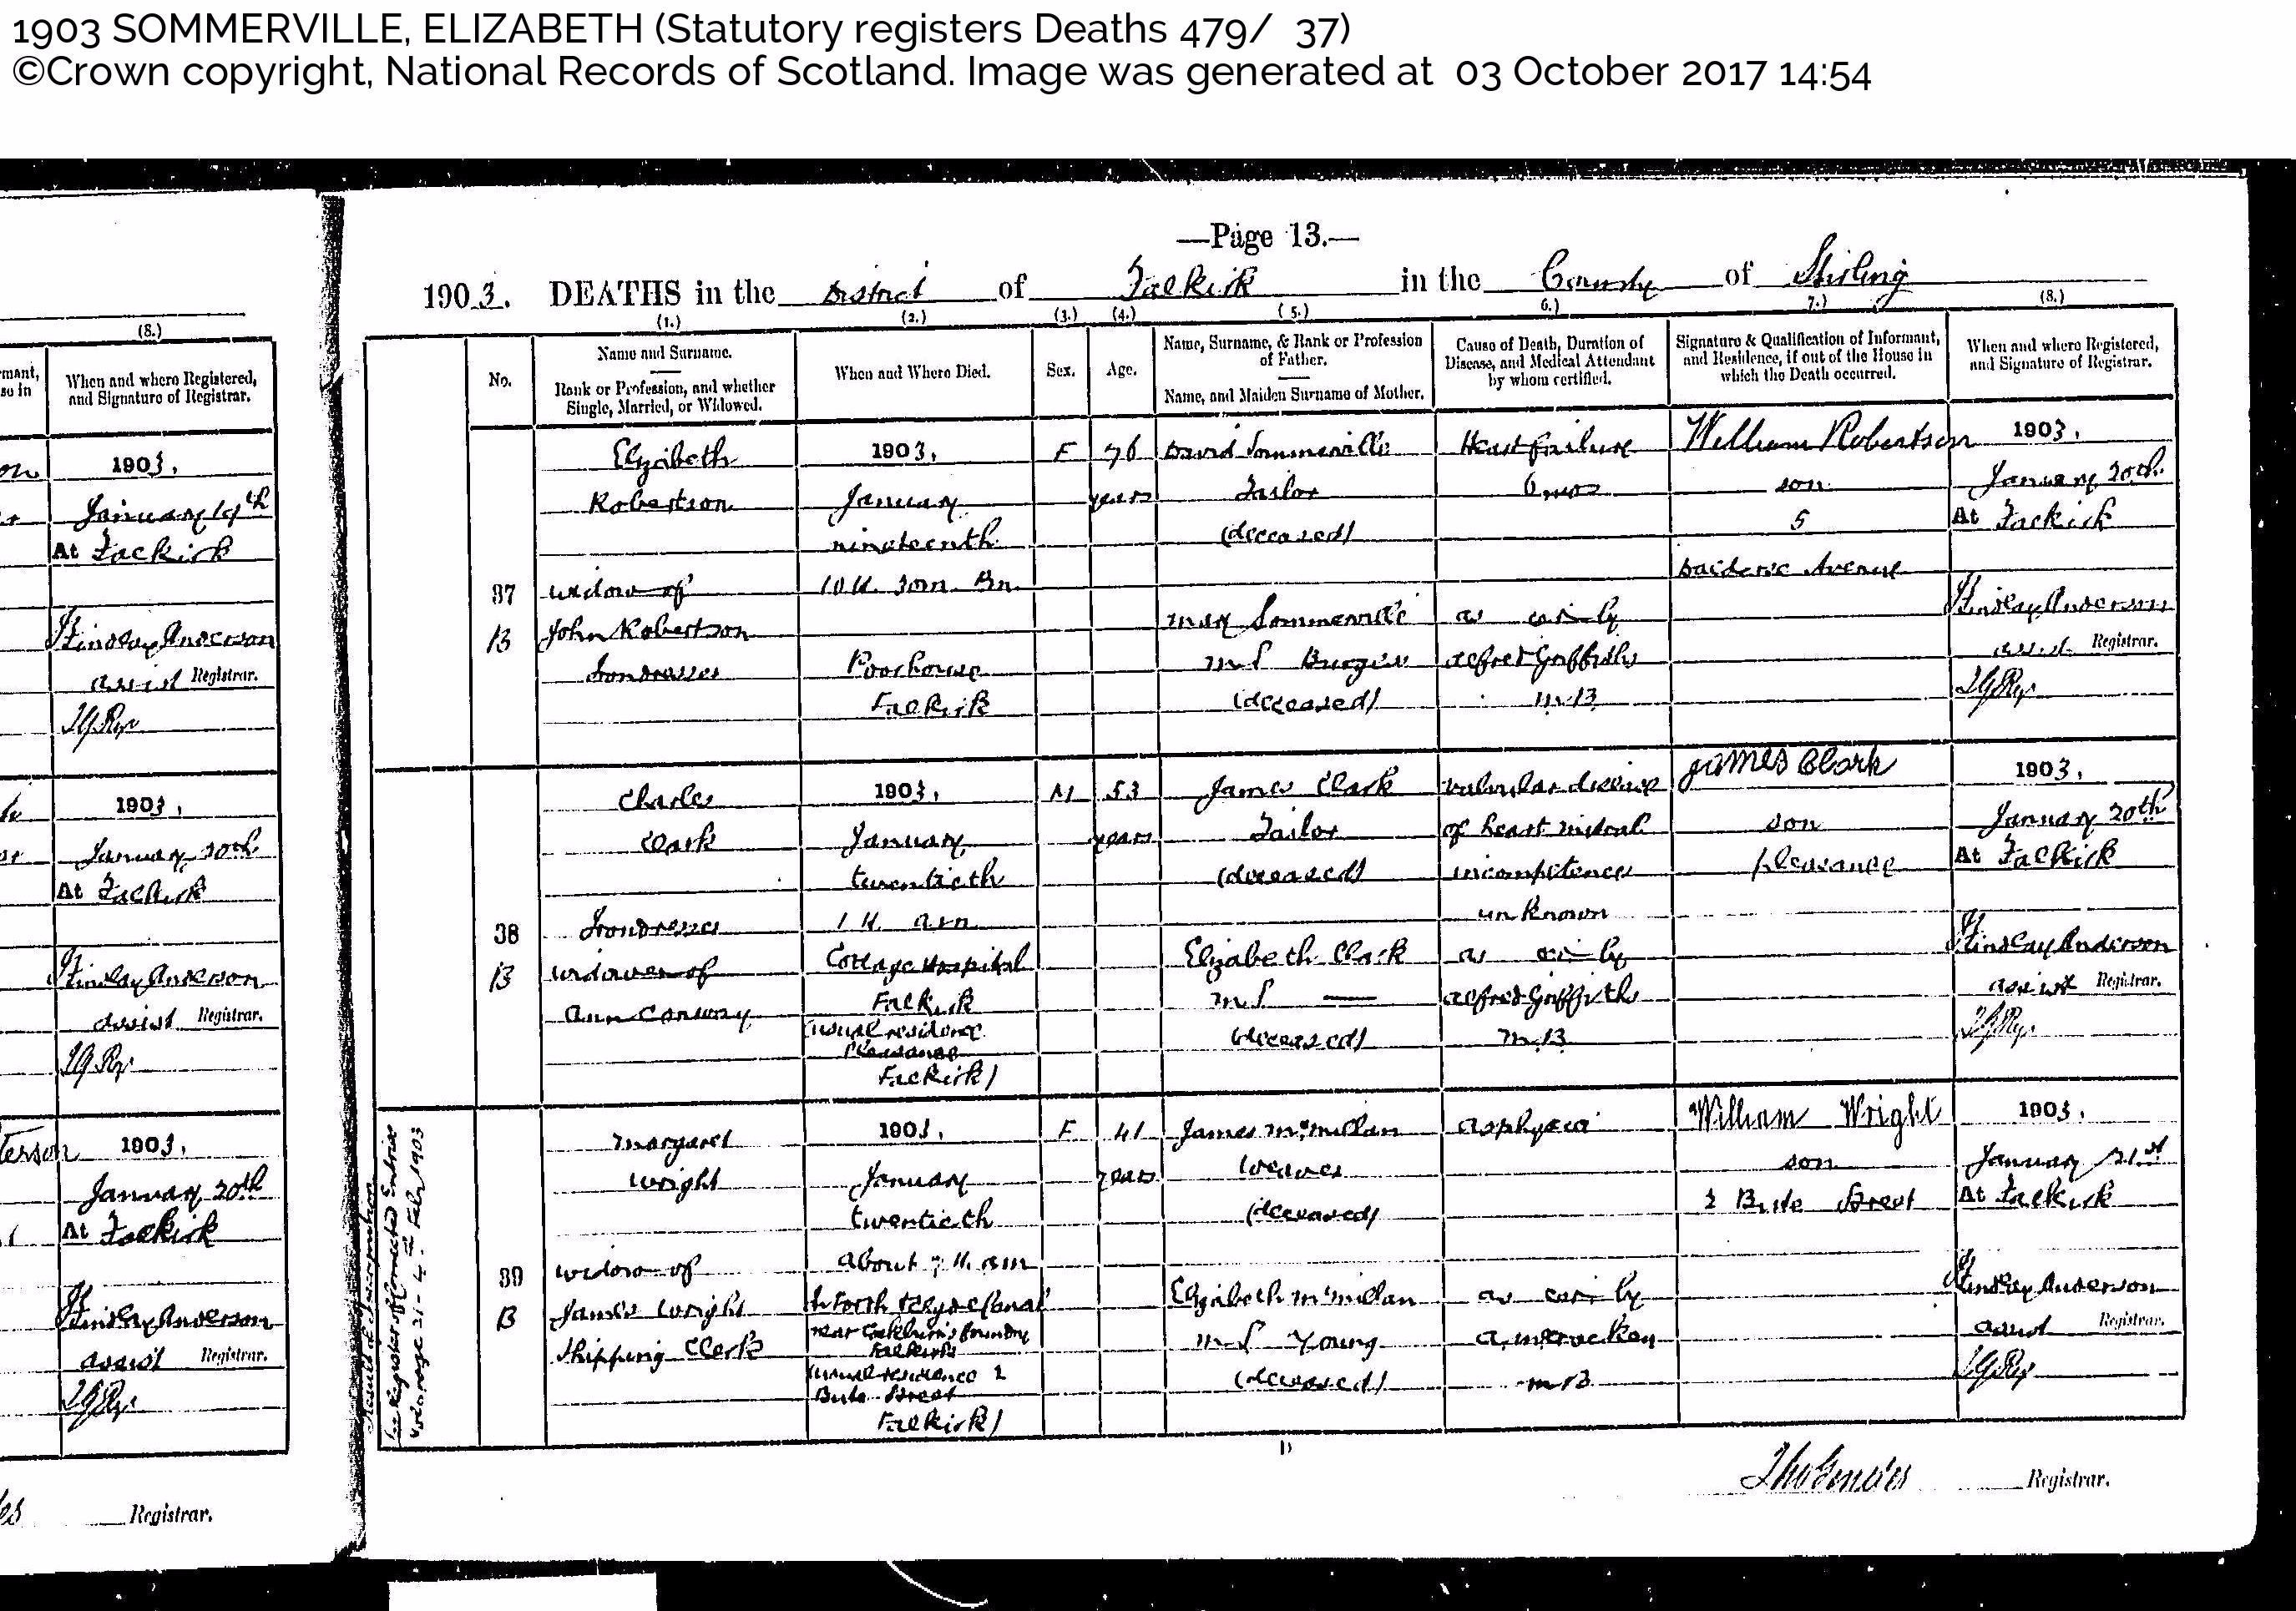 1903 SOMMERVILLE, ELIZABETH (Statutory registers Deaths 479/ 37)
©Crown copyright, National Records of Scotland. Image was generated at 03 October 2017 14:54
—Page 13.—
1903. DEATHS in the District of Falkirk in the County of Stirling
(1.) (2.) (3.) (4.) (5.) 6.) 7.) (8.)
No.
Name and Surname.
Rank or Profession, and whether
Single, Married, or Widowed.
When and Where Died.
Sex.
Age.
Name, Surname, & Rank or Profession
of Father.
Name, and Maiden Surname of Mother.
Cause of Death, Duration of
Disease, and Medical Attendant
by whom certified.
Signature & Qualification of Informant,
and Residence, if out of the House in
which the Death occurred.
When and where Registered,
and Signature of Registrar.
37
B
Elizabeth
Robertson
widow of
John Robertson
Irondresser
1903,
January
nineteenth
10 H. 30m. Pm.
Poorhouse
Falkirk
F
76
years
David Sommerville
Tailor
(deceased)
Mary Sommerville
m.s Burgess
(deceased)
Heart failure
6 mos
as cert by
Alfred Griffiths
M.B
William Robertson
son
5
Avenue
1903,
January 20th
At Falkirk
Findlay Anderson
assist Registrar.
38
B
Charles
Clark
Irondresser
widower of
Ann Conway
1903,
January
twentieth
1 H. a.m
Cottage Hospital
Falkirk
(usual residence
Pleasance
Falkirk)
M
53
years
James Clark
Tailor
(deceased)
Elizabeth Clark
m.s —
(deceased)
valvular disease
of heart mitral
incompetence
unknown
as cert by
Alfred Griffiths
M.B
James Clark
son
Pleasance
1903,
January 20th
At Falkirk
Findlay Anderson
assist Registrar.
39
B
Margaret
Wright
widow of
James Wright
Shipping Clerk
1903,
January
twentieth
about 7 H. am
In Forth & Clyde Canal
near Cockburn's foundry
Falkirk
(usual residence 2
Bute Street
Falkirk)
F
41
years
James McMillan
Weaver
(deceased)
Elizabeth McMillan
m.s Young
(deceased)
asphyxia
as cert by
M.B
William Wright
son
2 Bute Street
1903,
January 21st
At Falkirk
Findlay Anderson
assist Registrar.
Result of Precognition
See Register of Corrected Entries
Vol page 21 - 4th Feby 1903
D
Registrar.
(8.)
When and where Registered,
and Signature of Registrar.
1903,
January 19th
At Falkirk
Findlay Anderson
assist Registrar.
1903,
January 20th
At Falkirk
Findlay Anderson
assist Registrar.
1903,
January 20th
At Falkirk
Findlay Anderson
assist Registrar.
Registrar.